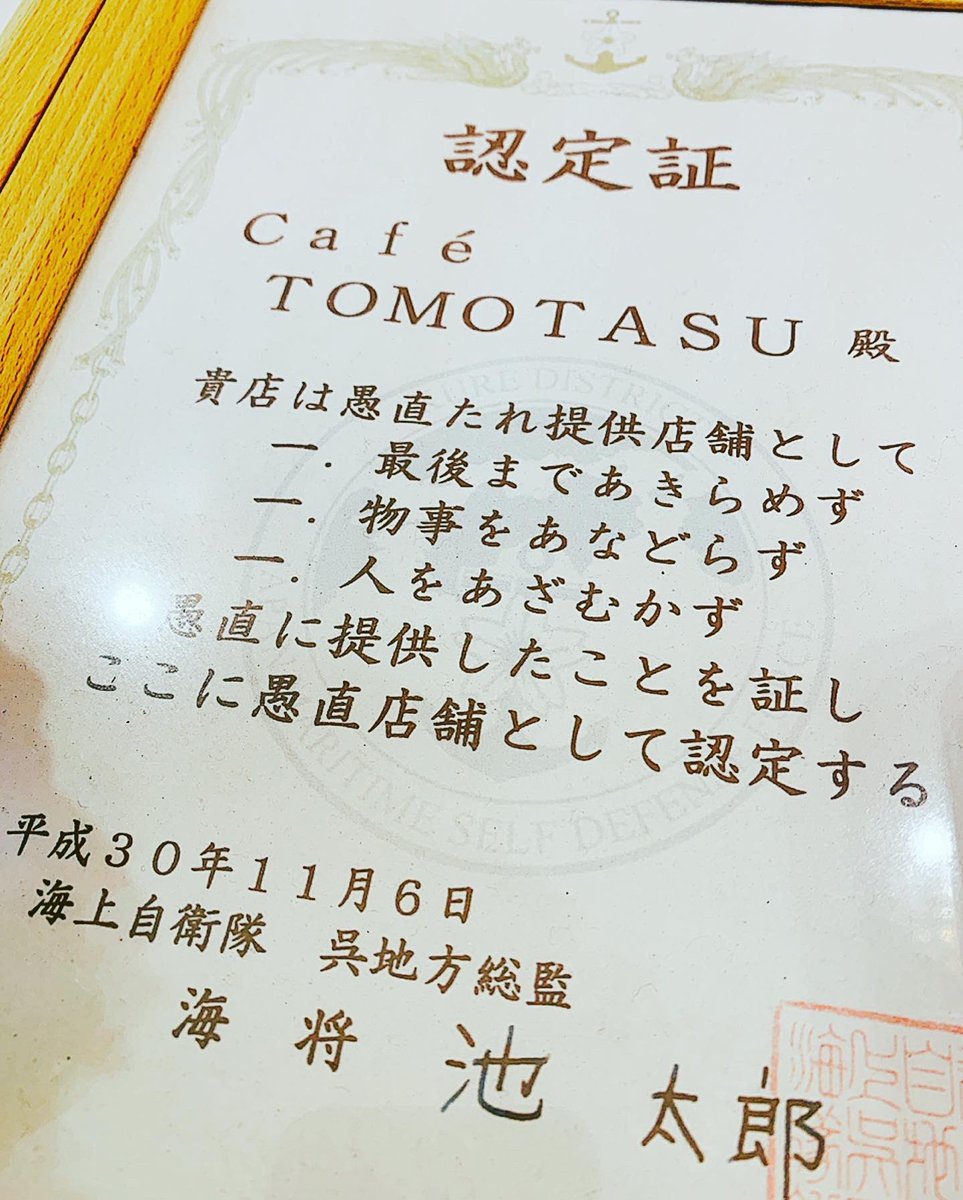 認定証
Café
TOMOTASU 殿
貴店は愚直たれ提供店舗として
一．最後まであきらめず
一．物事をあなどらず
一．人をあざむかず
愚直に提供したことを証し
ここに愚直店舗として認定する
平成３０年１１月６日
海上自衛隊　呉地方総監
海将　池　太郎
KURE DISTRICT
MARITIME SELF DEFENSE